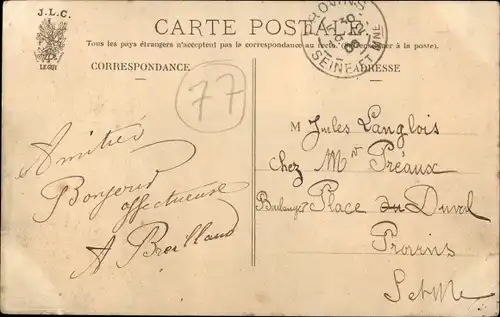 J.L.C.
LE GUY
CARTE POSTALE
PROVINS
SEINE-ET-MARNE
Tous les pays étrangers n'acceptent pas la correspondance au recto. (Se renseigner à la poste).
CORRESPONDANCE
ADRESSE
77
Amitié
Bonjour
affectueuse
A Breilland
M Jules Langlois
Chez Mr Préaux
Boulanger Place du Duval
Provins
S et M